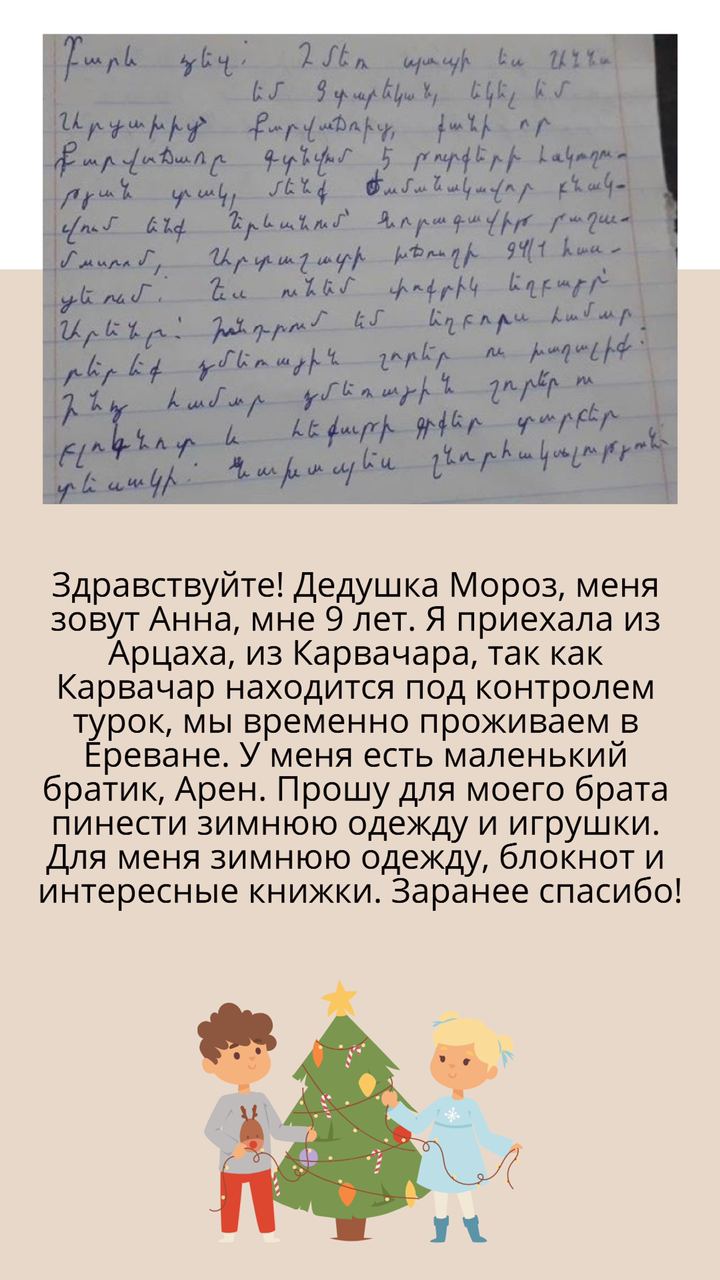 Բարև ձեզ: Ձմեռ պապի ես Աննա
եմ 9 տարեկան, եկել եմ
Արցախից՝ Քարվաճառից, քանի որ
Քարվաճառը գտնվում է թուրքերի հսկողու-
թյան տակ, մենք ժամանակավոր բնակ-
վում ենք Երևանում՝ Նորագավիթ թաղա-
մասում, Արտաշատի խճուղի 94/1 հաս-
ցեում: Ես ունեմ փոքրիկ եղբայր՝
Արենը: Խնդրում եմ եղբորս համար
բերեք ձմեռային շորեր ու խաղալիք:
Ինձ համար ձմեռային շորեր ու
բլոգնոտ և հեքյաթի գրքեր տարբեր
տեսակի: Նախապես շնորհակալություն
Здравствуйте! Дедушка Мороз, меня
зовут Анна, мне 9 лет. Я приехала из
Арцаха, из Карвачара, так как
Карвачар находится под контролем
турок, мы временно проживаем в
Ереване. У меня есть маленький
братик, Арен. Прошу для моего брата
пинести зимнюю одежду и игрушки.
Для меня зимнюю одежду, блокнот и
интересные книжки. Заранее спасибо!